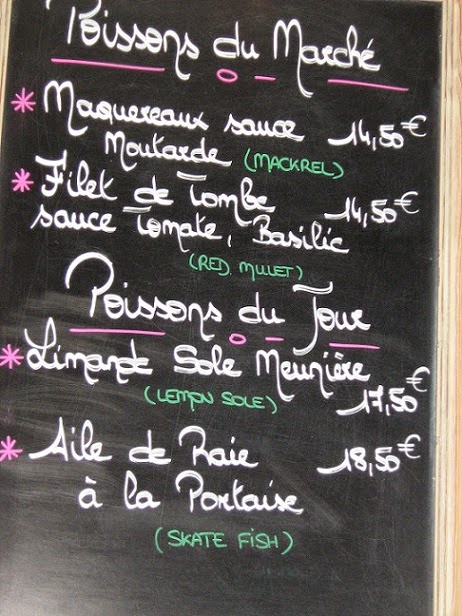 Poissons du Marché
* Maquereaux sauce 14,50€
Moutarde (MACKREL)
* Filet de Tombe 14,50€
sauce Tomate, Basilic
(RED MULET)
Poissons du Jour
* Limande Sole Meunière
(LEMON SOLE) 17,50€
* Aile de Raie 18,50€
à la Portaise
(SKATE FISH)